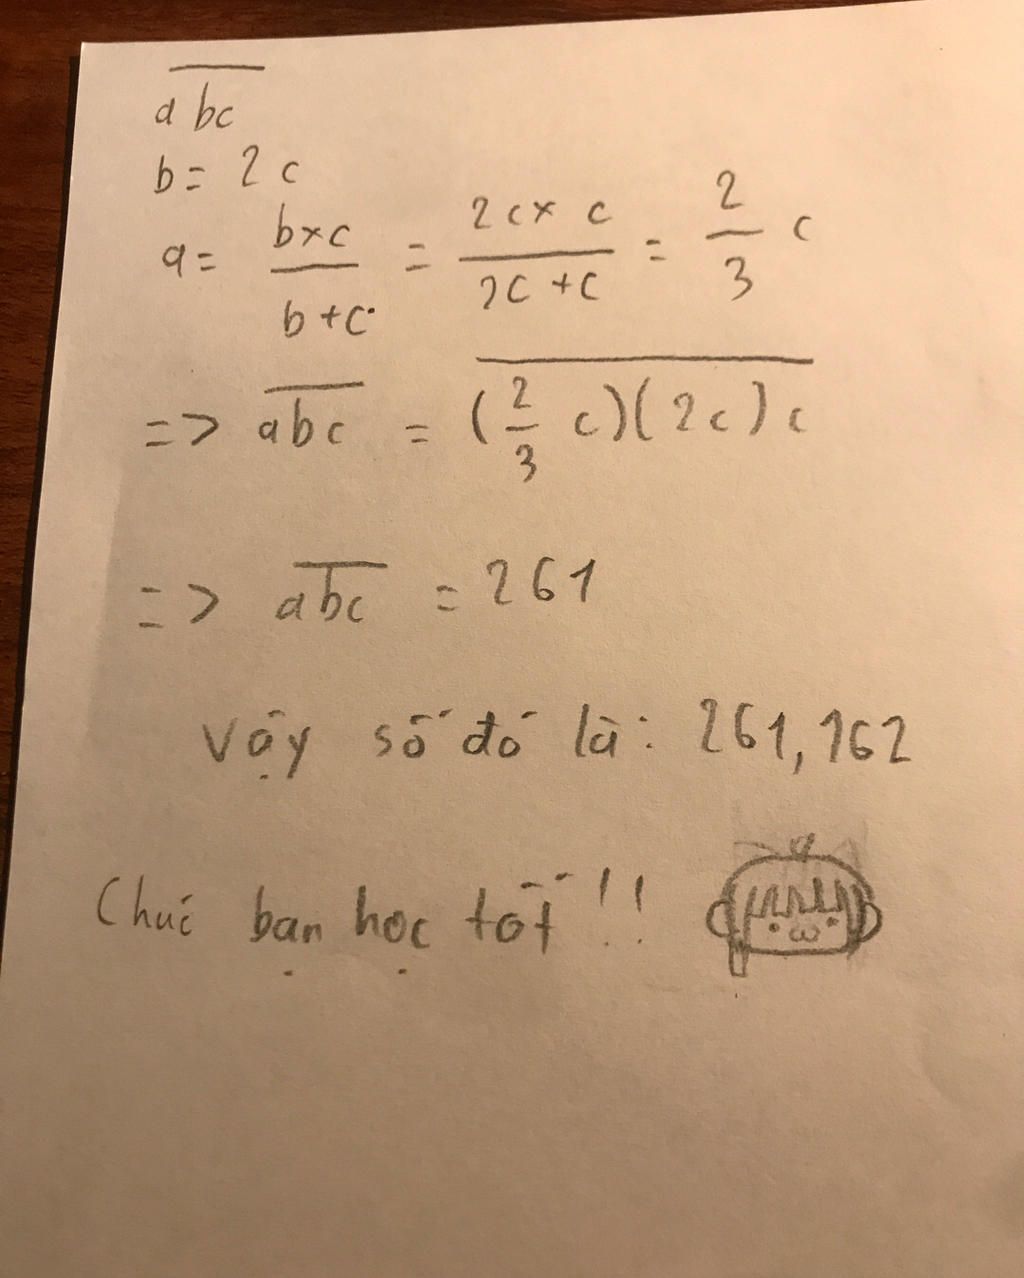 abc
b = 2c
a = b×c / b+c = 2c× c / 2c+c = 2/3 c
=> abc = (2/3 c)(2c)c
=> abc = 261
Vậy số đó là: 261, 162
Chúc bạn học tốt!!